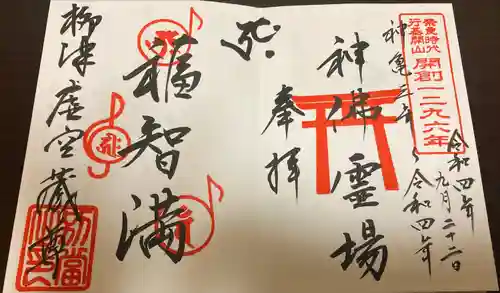 奈良時代
行基開山
開創一二九六年
神亀三年~令和四年
令和四年
九月二十二日
神佛霊場
奉拝
福智満
柳津虚空蔵尊
別當